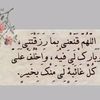 اللَّهُمَّ قَنِّعْنِي بِمَا رَزَقْتَنِي
وَبَارِكْ لِي فِيهِ، وَاخْلُفْ عَلَى
كُلِّ غَائِبَةٍ لِي مِنْكَ بِخَيْرٍ